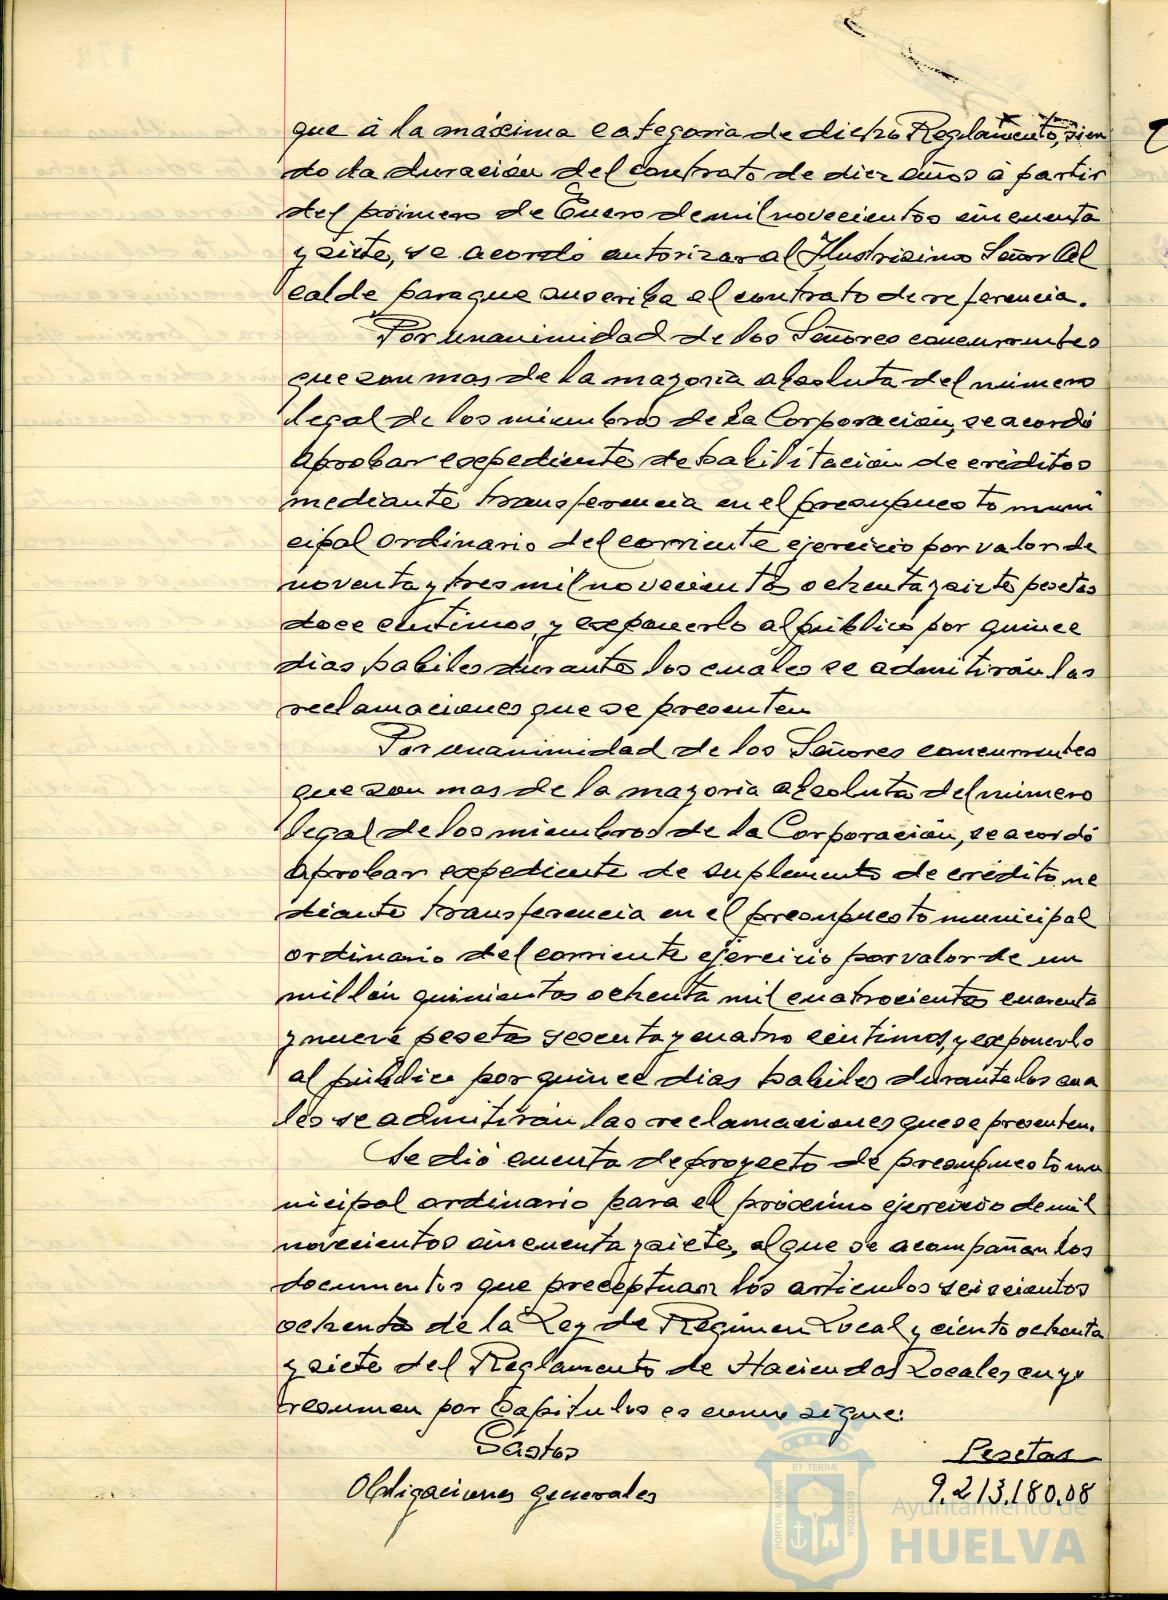 que á la máxima categoria de dicho Reglamento, sien
do la duración del contrato de diez años á partir
del primero de Enero de mil novecientos cincuenta
y siete, se acordó autorizar al Ilustrisimo Señor Al
calde para que suscriba el contrato de referencia.
Por unanimidad de los Señores concurrentes
que son mas de la mayoria absoluta del número
legal de los miembros de la Corporación, se acordó
aprobar expediente de habilitación de créditos
mediante transferencia en el presupuesto muni
cipal ordinario del corriente ejercicio por valor de
noventa y tres mil novecientas ochenta y siete pesetas
doce centimos, y exponerlo al público por quince
dias habiles durante los cuales se admitirán las
reclamaciones que se presenten
Por unanimidad de los Señores concurrentes
que son mas de la mayoria absoluta del número
legal de los miembros de la Corporación, se acordó
aprobar expediente de suplemento de crédito me
diante transferencia en el presupuesto municipal
ordinario del corriente ejercicio por valor de un
millón quinientas ochenta mil cuatrocientas cuarenta
y nueve pesetas sesenta y cuatro céntimos, y exponerlo
al público por quince dias habiles durante los cua
les se admitirán las reclamaciones que se presenten.
Se dió cuenta de proyecto de presupuesto mu
nicipal ordinario para el próximo ejercicio de mil
novecientos cincuenta y siete, al que se acompañan los
documentos que preceptuan los articulos seiscientos
ochenta de la Ley de Régimen Local y ciento ochenta
y siete del Reglamento de Haciendas Locales, cuyo
resumen por Capitulos es como sigue:
Gastos Pesetas
Obligaciones generales 9.213.180,08
ET TERRÆ
PORTUS MARIS
CUSTODIA
Ayuntamiento de
HUELVA